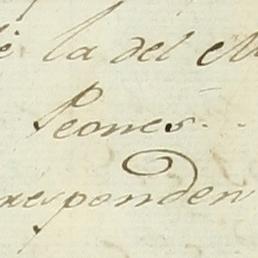 la del
Peones
responden